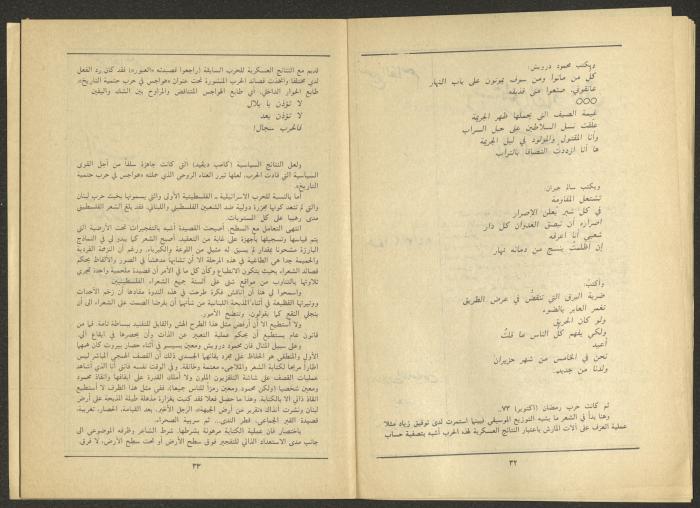 ويكتب محمود درويش:
كل من ماتوا ومن سوف يموتون على باب النهار
عانقوني، صنعوا مني قذيفه
○○○
غيمة الصيف التي يحملها ظهر الجريمة
علقت نسل السلاطين على حبل السراب
وأنا المقتول والمولود في ليل الجريمة
ها أنا ازددت التصاقا بالتراب
ويكتب سالم جبران
تشتعل المقاومة
في كل شبر يعلن الإصرار
اصراره أن تبصق العدوان كل دار
شعبي أنا أعرفه
إن أظلمت ينسج من دمائه نهار
وأكتب:
ضربة البرق التي تنقض في عرض الطريق
تغمر العابر بالضوء
ولو كان الحريق
ولكي يفهم كل الناس ما قلت
أعيد
نحن في الخامس من شهر حزيران
ولدنا من جديد.
ثم كانت حرب رمضان (اكتوبر) ٧٣..
وهنا بدأ في الشعر ما يشبه التوزيع الموسيقي فبينما استمرت لدى توفيق زياد مثلا
عملية العزف على آلات المارش باعتبار النتائج العسكرية لهذه الحرب أشبه بتصفية حساب
٣٢
قديم مع النتائج العسكرية للحرب السابقة (راجعوا قصيدته «العبور») فقد كان رد الفعل
لدي مختلفا واتخذت قصائد الحرب المنشورة تحت عنوان «هواجس في حرب حتمية التاريخ»،
طابع الحوار الداخلي، أي طابع الهواجس المتناقض والمراوح بين الشك واليقين
لا تؤذن يا بلال
لا تؤذن بعد
فالحرب سجال!
ولعل النتائج السياسية (كامب ديفيد) التي كانت جاهزة سلفا من أجل القوى
السياسية التي قادت الحرب، لعلها تبرر العناء الروحي الذي حملته «هواجس في حرب حتمية
التاريخ».
أما بالنسبة للحرب الاسرائيلية ـ الفلسطينية الأولى والتي يسمونها بخبث حرب لبنان
والتي لم تتعد كونها مجزرة دولية ضد الشعبين الفلسطيني واللبناني، فقد بلغ الشعر الفلسطيني
مدى رهيبا على كل المستويات.
انتهى التعامل مع السطح. أصبحت القصيدة أشبه بالتفجيرات تحت الأرضية التي
يتم قياسها وتسجيلها بأجهزة على غاية من التعقيد. أصبح الشعر كما يبدو لي في النماذج
البارزة مشحونا بمقدار لم يسبق له مثيل من اللوعة والكبرياء. ورغم أن النزعة الفردية
والحميمة جدا هي الطاغية في هذه المرحلة الا أن تشابها مدهشا في الصور والالفاظ يحكم
قصائد الشعراء بحيث يتكون الانطباع وكأن كل ما في الأمر أن قصيدة ملحمية واحدة تجري
تلاوتها بالتناوب من مواقع شتى على ألسنة جميع الشعراء الفلسطينيين
واسمحوا لي هنا أن أناقش فكرة طرحت في هذه الندوة مفادها أن زخم الاحداث
ووتيرتها الفظيعة في أثناء المذبحة اللبنانية من شأنهما أن يفرضا الصمت على الشعراء الى أن
ينجلي النقع كما يقولون، وتتضح الأمور.
ولا أستطيع الا أن أرفض مثل هذا الطرح الهش والقابل للتفنيد ببساطة تامة. فما من
قانون عام يستطيع أن يحكم عملية التعبير عن الذات وأن يحصرها في ايقاع آلي.
وعلى سبيل المثال فان محمود درويش ومعين بسيسو في أثناء حصار بيروت كان همهما
الأول والمنطقي هو الحفاظ على مجرد بقائهما الجسدي ذلك أن القصف الهمجي المباشر ليس
اطارا مريحا لكتابة الشعر والملاجىء معتمة وخانقة. وفي الوقت نفسه فانني أنا الذي أشاهد
عمليات القصف على شاشة التلفزيون الملون ولا أملك القدرة على ايقافها وانقاذ محمود
ومعين شخصيا (ولكن محمود ومعين رمزا للناس جميعا)، ففي مثل هذا الظرف لا أستطيع
انقاذ ذاتي الا بالكتابة. وهذا ما حصل فعلا فقد كتبت بغزارة مذهلة طيلة المذبحة على أرض
لبنان ونشرت آنذاك «تقرير عن أرض الجبهة»، الرجل الأخير، بعد القيامة، الحصار، تغريبة،
قصيدة القبر الجماعي، قطر الندى.. ثم سربية الصحراء.
باختصار فان عملية الكتابة مرهونة بشرطها. شرط الشاعر وظرفه الموضوعي الى
جانب مدى الاستعداد الذاتي للتفجير فوق سطح الأرض أو تحت سطح الأرض، لا فرق.
٣٣